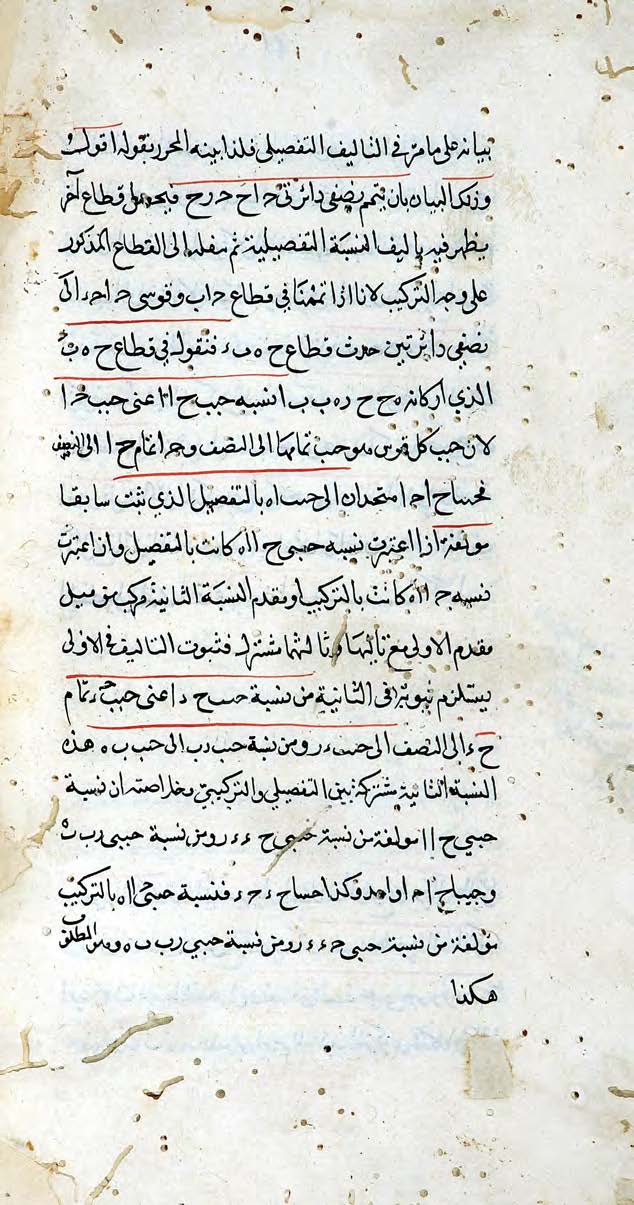 بيانه على ما مر في التاليف التفصيلي فلذا بينه المحرر بقوله اقول و
وذلك البيان بان يتمم نصفي دائرتي ح ا ح ح ر ح فيحصل قطاع آخر
يظهر فيه تاليف النسبة التفصيلية ثم ينقله الى القطاع المذكور
على وجه التركيب لانا اذا تممنا في قطاع ح د ا ب وقوسي ح ا ح ء الى
نصفي دائرتين حدث قطاع ح ه ب ء فنقول في قطاع ح ه ب ء
الذي اركانه ه ح ح ر ه ب ب ا نسبة جيب ح ا اعني جيب ح ا
لان جيب كل قوس هو جيب تمامها الى النصف و ح ا تمام ح ا الى النصف
فجيبا ح ا ح ا متحدان الى جيب ا ه بالتفصيل الذي ثبت سابقا
مولفة اذا اعتبرت نسبة جيبي ح ا ا ه كانت بالتفصيل واذا اعتبرت
نسبة ح ا ا ه كانت بالتركيب ومقدم النسبة الثانية مركب من
مقدم الاولى مع تاليها وتاليهما مشترك فثبوت التاليف في الاولى
يستلزم ثبوته في الثانية من نسبة جيب ح ء اعني جيب ح ء تمام
ح ء الى النصف الى جيب ء ر ومن نسبة جيب ر ب الى جيب ب ه هذه
النسبة الثانية مشتركة بين التفصيلي والتركيبي وخلاصته ان نسبة
جيبي ح ا ا ه مولفة من نسبة جيبي ح ء ء ر ومن نسبة جيبي ر ب ب ه
وجيبا ح ا ح ا واحد وكذا جيبا ح ء ح ء فنسبة جيبي ح ا ا ه بالتركيب
مولفة من نسبة جيبي ح ء ء ر ومن نسبة جيبي ر ب ب ه وهو المطلوب
هكذا